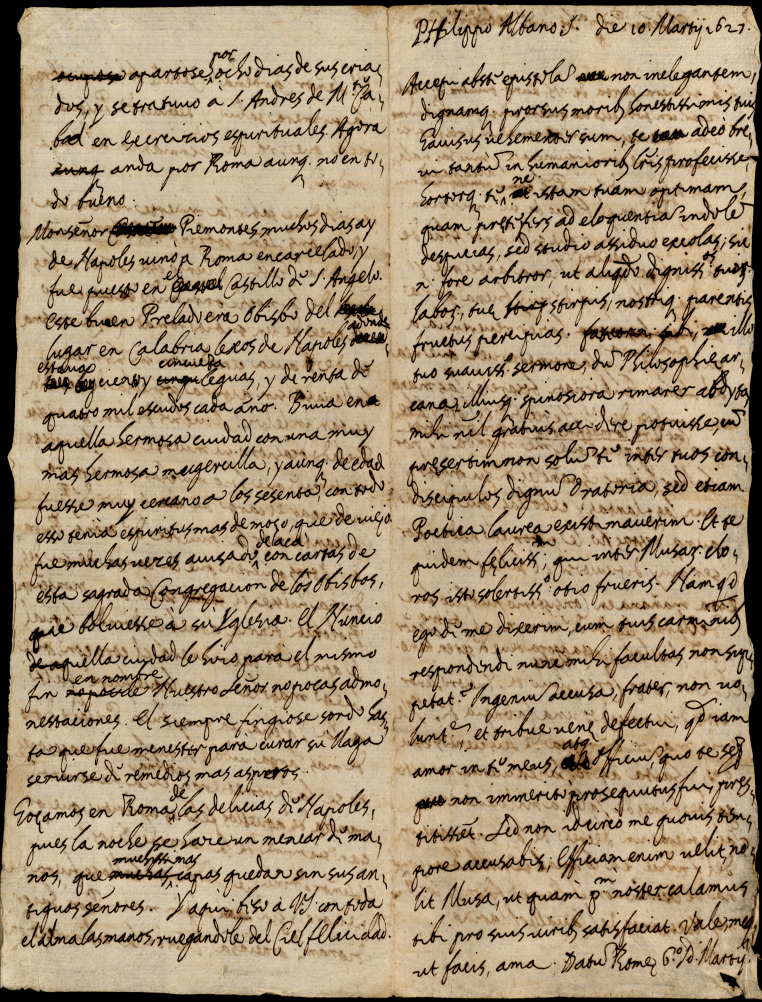 apartose por ocho dias de sus cria,
dos, y se tratuvo à S. Andres de M.te Ca,
bal en exercicios espirituales. Agora
anda por Roma aunq. no en to,
do bueno.
Monseñor Piemontes muchos dias ay
de Napoles vino à Roma encarcelado, y
fue puesto en el Castillo di S. Angelo.
Este buen Prelado era Obisbo del
lugar en Calabria lexos de Napoles adonde
estava ciento y cinquenta leguas, y de renta di
quatro mil escudos cada año. Bivia en
aquella hermosa ciudad con una muy
mas hermosa mugercilla, y aunq. de edad
fuesse muy cercano a los sesenta, con todo
esso tenia espiritus mas de moço, que de viejo.
fue muchas vezes avisado de aca con cartas de
esta sagrada Congregacion de los Obisbos,
que bolviesse à su Yglesia. El Nuncio
de aquella ciudad le hizo para el mismo
fin en nombre Nuestro Señor no pocas admo,
nestaciones. El siempre fingiose sordo has,
ta que fue menester para curar su llaga
servirse di remedios mas asperos.
Goçamos en Roma de las delicias di Napoles,
pues la noche se haze un menear di ma,
nos, que muchissimas capas quedan sin sus an,
tiguos señores. Y aqui biso à VS. con toda
el alma las manos, ruegandole del Ciel felicidad.
Philippo Albano S. die 10 Martij 1627.
Accepi abs te epistolã non inelegantem,
dignamq. prorsus moribus honestissimis tuis
Gavisus vehementer sum, te adeò bre,
vi tantũ in humanioribus lris profecisse,
hortorq. te, ne istam tuam optimam,
quam præ te fers ad eloquentiã indolẽ
despicias, sed studio assiduo excolas; sic
n. fore arbitror, ut aliqdo digniss.os tuis
labos, tuæ stirpis, nostriq. parentis
fructus percipias. illo
tuo suaviss.o sermone, dũ Philosophiæ ar,
cana, illiusq. spinosiora rimarer abdyta
mihi nil gratius accidere potuisse, cũ
presertim non solũ te inter tuos con,
discipulos dignũ Oratoria, sed etiam
Poetica laurea existimaverim. Et te
quidem feliciss.m, qui inter Musar. cho,
ros isto solertiss.o otio frueris. Nam qd
ego de me dixerim, cum tuis carminibus
respondendi nunc mihi facultas non sup,
petat? Ingeniũ accusa, frater, non vo,
luntẽ, et tribue venę defectui, qd iam
amor in te meus, atq. officiũ, quo te semp.
non immerito prosequutus fui, præs,
titisset. Sed non idcirco me quovis tem,
pore accusabis; Efficiam enim velit, no,
lit Musa, ut quam p.m noster calamus
tibi pro suis viribus satisfaciat. Vale, meq.
ut facis, ama. Datũ Romæ, 6.o Id. Martij.